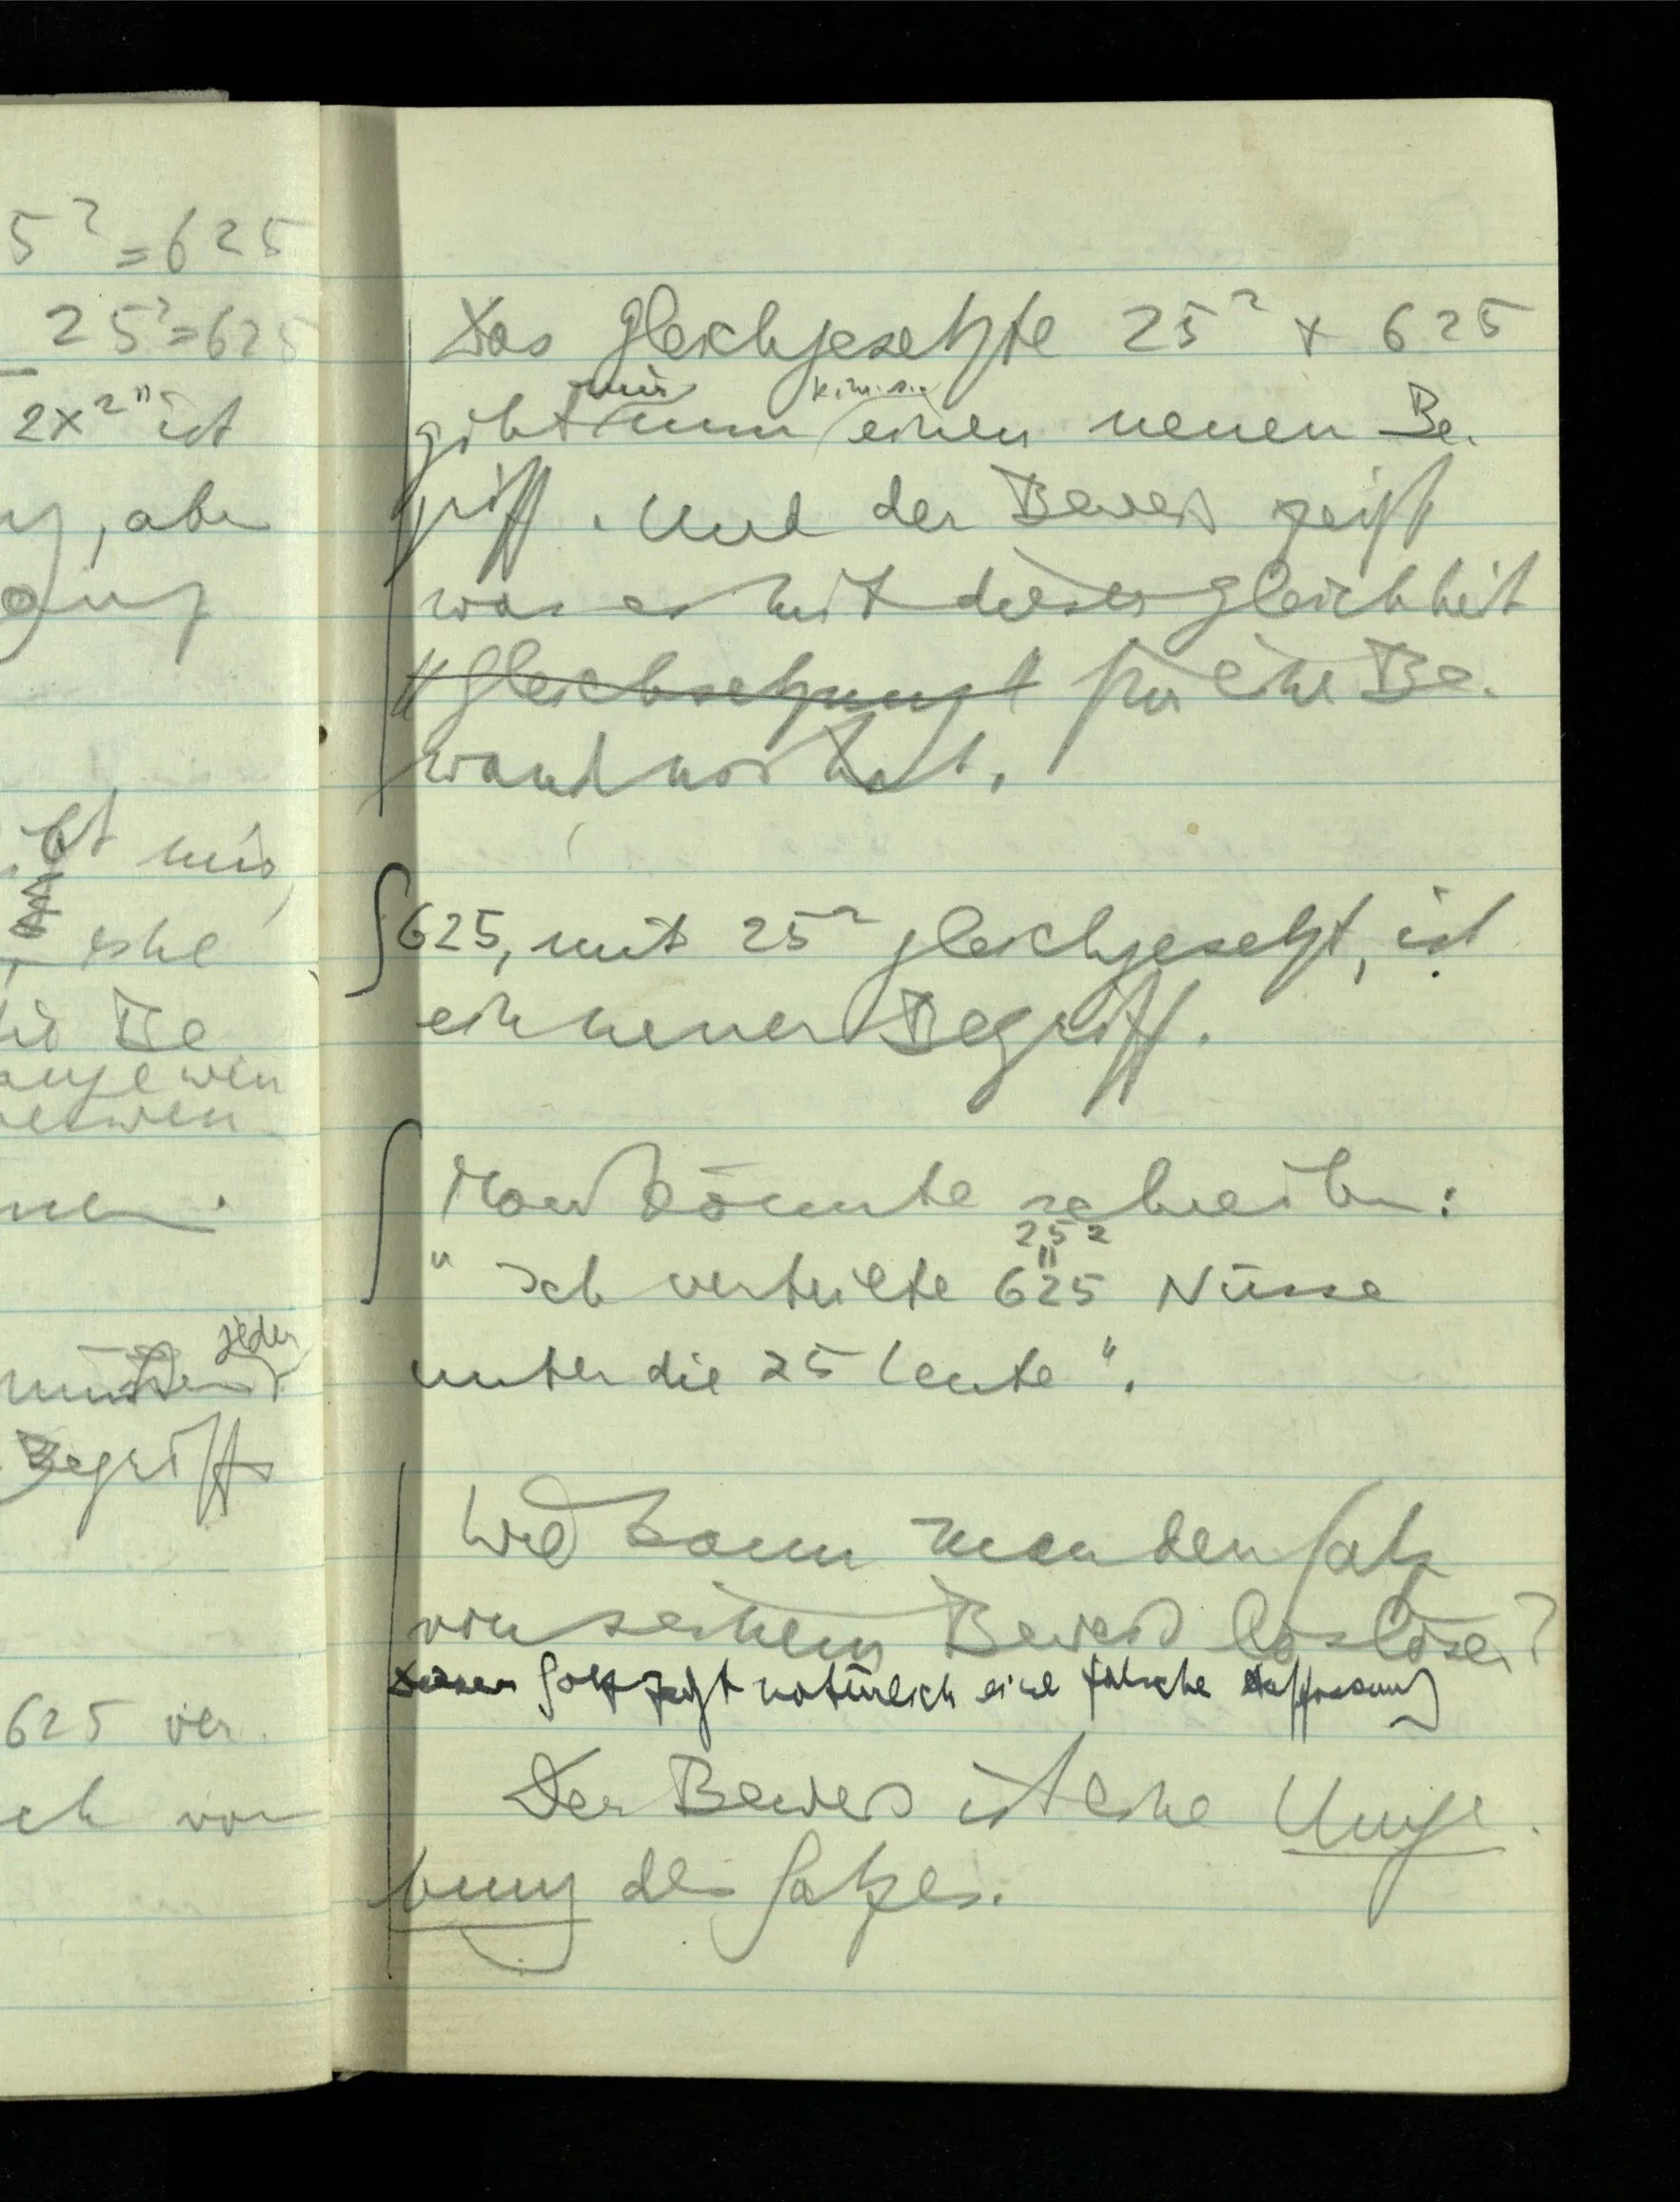 5² = 625
25² = 625
2x²" ist
, aber
mir,
eine
Be
angewen
verwen
nen.
jeder
Begriff
625 ver
ich von
Das gleichgesetzte 25² & 625
mir k.m.s.
gibt nun einen neuen Be-
griff. Und der Beweis zeigt
was es mit dieser Gleichheit
// Gleichsetzung // für eine Be-
wandtnis hat.
625, mit 25² gleichgesetzt, ist
ein neuer Begriff.
Man könnte schreiben:
25²
"
" Ich verteilte 625 Nüsse
unter die 25 Leute ".
Wie kann man den Satz
von seinem Beweis loslösen?
Dieser Satz zeigt natürlich eine falsche Auffassung
Der Beweis ist eine Umge-
bung des Satzes.